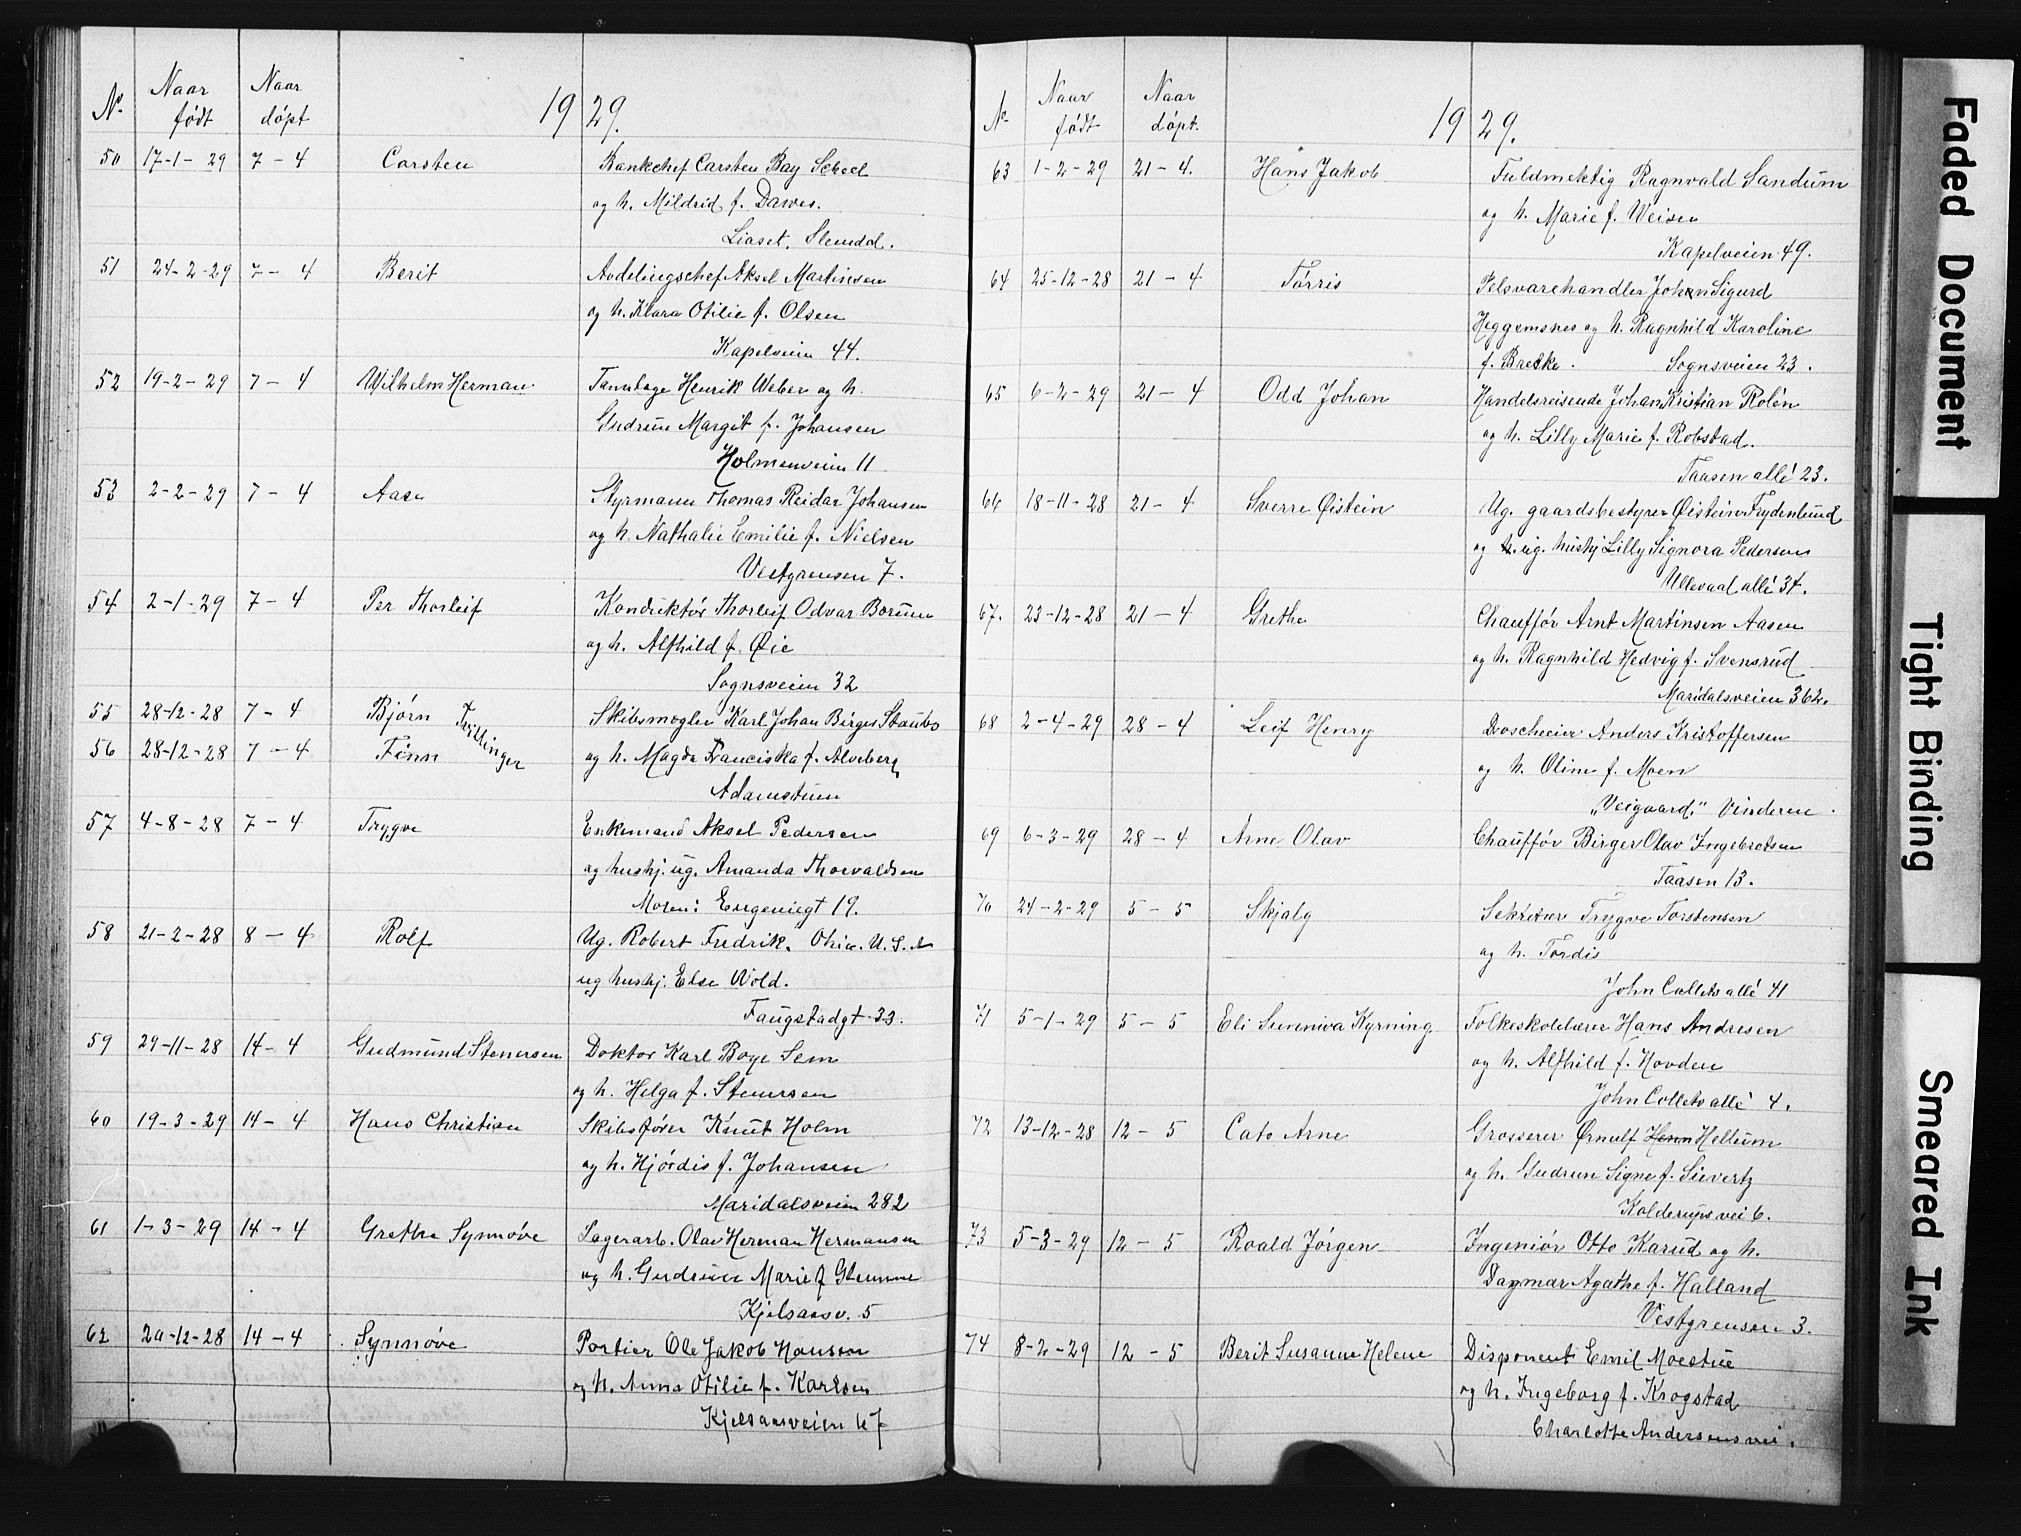 No. Naar født Naar døpt 1929.
50 17-1-29 7-4 Carsten Bankchef Carsten Bay Scheel
og h. Mildrid f. Dawes.
Liaset. Slemdal.
51 24-2-29 7-4 Berit Avdelingschef Aksel Martinsen
og h. Klara Otilie f. Olsen
Kapelveien 44.
52 19-2-29 7-4 Wilhelm Herman Tannlæge Henrik Weber og h.
Gudrun Margit f. Johansen
Holmenveien 11
53 2-2-29 7-4 Aase Styrmann Thomas Reidar Johansen
og h. Nathalie Emilie f. Nielsen
Vestgrensen 7.
54 2-1-29 7-4 Per Thorleif Konduktør Thorleif Odvar Borum
og h. Alfhild f. Øie
Sognsveien 32
55 28-12-28 7-4 Bjørn Tvillinger Skibsmægler Karl Johan Birger Staubo
56 28-12-28 7-4 Finn og h. Magda Franciska f. Alveberg
Adamstuen
57 4-8-28 7-4 Trygve Enkemand Aksel Pedersen
og hushj. ug. Amanda Thorvaldsen
Moren: Eugeniegt 19.
58 21-2-28 8-4 Rolf Ug. Robert Fredrik. Ohio. U.S.A
ug hushj. Else Wold.
Faugstadgt 33.
59 29-11-28 14-4 Gudmund Stenersen Doktor Karl Boye Sem
og h. Helga f. Stenersen
60 19-3-29 14-4 Hans Christian Skibsfører Knut Holm
og h. Hjørdis f. Johansen
Maridalsveien 282
61 1-3-29 14-4 Grethe Synnøve Lagerarb. Olav Herman Hermansen
og h. Gudrun Marie f
Kjelsaasv. 5
62 20-12-28 14-4 Synnøve Portier Ole Jakob Hansen
og h. Anna Otilie f. Karlsen
Kjelsaasveien
No. Naar født Naar døpt. 1929.
63 1-2-29 21-4. Hans Jakob Fuldmektig Ragnvald Sandum
og h. Marie f. Weisen
Kapelveien 49.
64 25-12-28 21-4 Tørris Pelsvarehandler Johan Sigurd
Heggemsnes og h. Ragnhild Karoline
f. Brekke. Sognsveien 23.
65 6-2-29 21-4 Odd Johan Handelsreisende Johan Kristian Rolén
og h. Lilly Marie f. Robstad.
Taasen allé 23.
66 18-11-28 21-4 Sverre Øistein Ug. gaardsbestyrer Øistein Frydenlund
og ug. hushj Lilly Signora Pedersen
Ullevaal allé 34.
67. 23-12-28 21-4 Grethe Chauffør Arnt Martinsen Aasen
og h. Ragnhild Hedvig f. Svensrud
Maridalsveien 362.
68 2-4-29 28-4 Leif Henry Droscheeier Anders Kristoffersen
og h. Oline f. Moen
"Veigaard," Vinderen.
69 6-3-29 28-4 Arne Olav Chauffør Birger Olav Ingebretsen
Taasen 13.
70 24-2-29 5-5 Skjalg Sekretær Trygve Torstensen
og h. Tordis
John Collets allé 41
71 5-1-29 5-5 Eli Sunniva Kyrning Folkeskolelærer Hans Andresen
og h. Alfhild f. Hovden
John Collets allé 4.
72 13-12-28 12-5 Cato Arne Grosserer Ørnulf Henn Hellum
og h. Gudrun Signe f. Sievertz
Kolderups vei 6.
73 5-3-29 12-5 Roald Jørgen Ingeniør Otto Karud og h.
Dagmar Agathe f. Halland
Vestgrensen 3.
74 8-2-29 12-5 Berit Susanne Helene Disponent Emil Moestue
og h. Ingeborg f. Krogstad
Charlotte Andersens vei.
Faded Document
Tight Binding
Smeared Ink